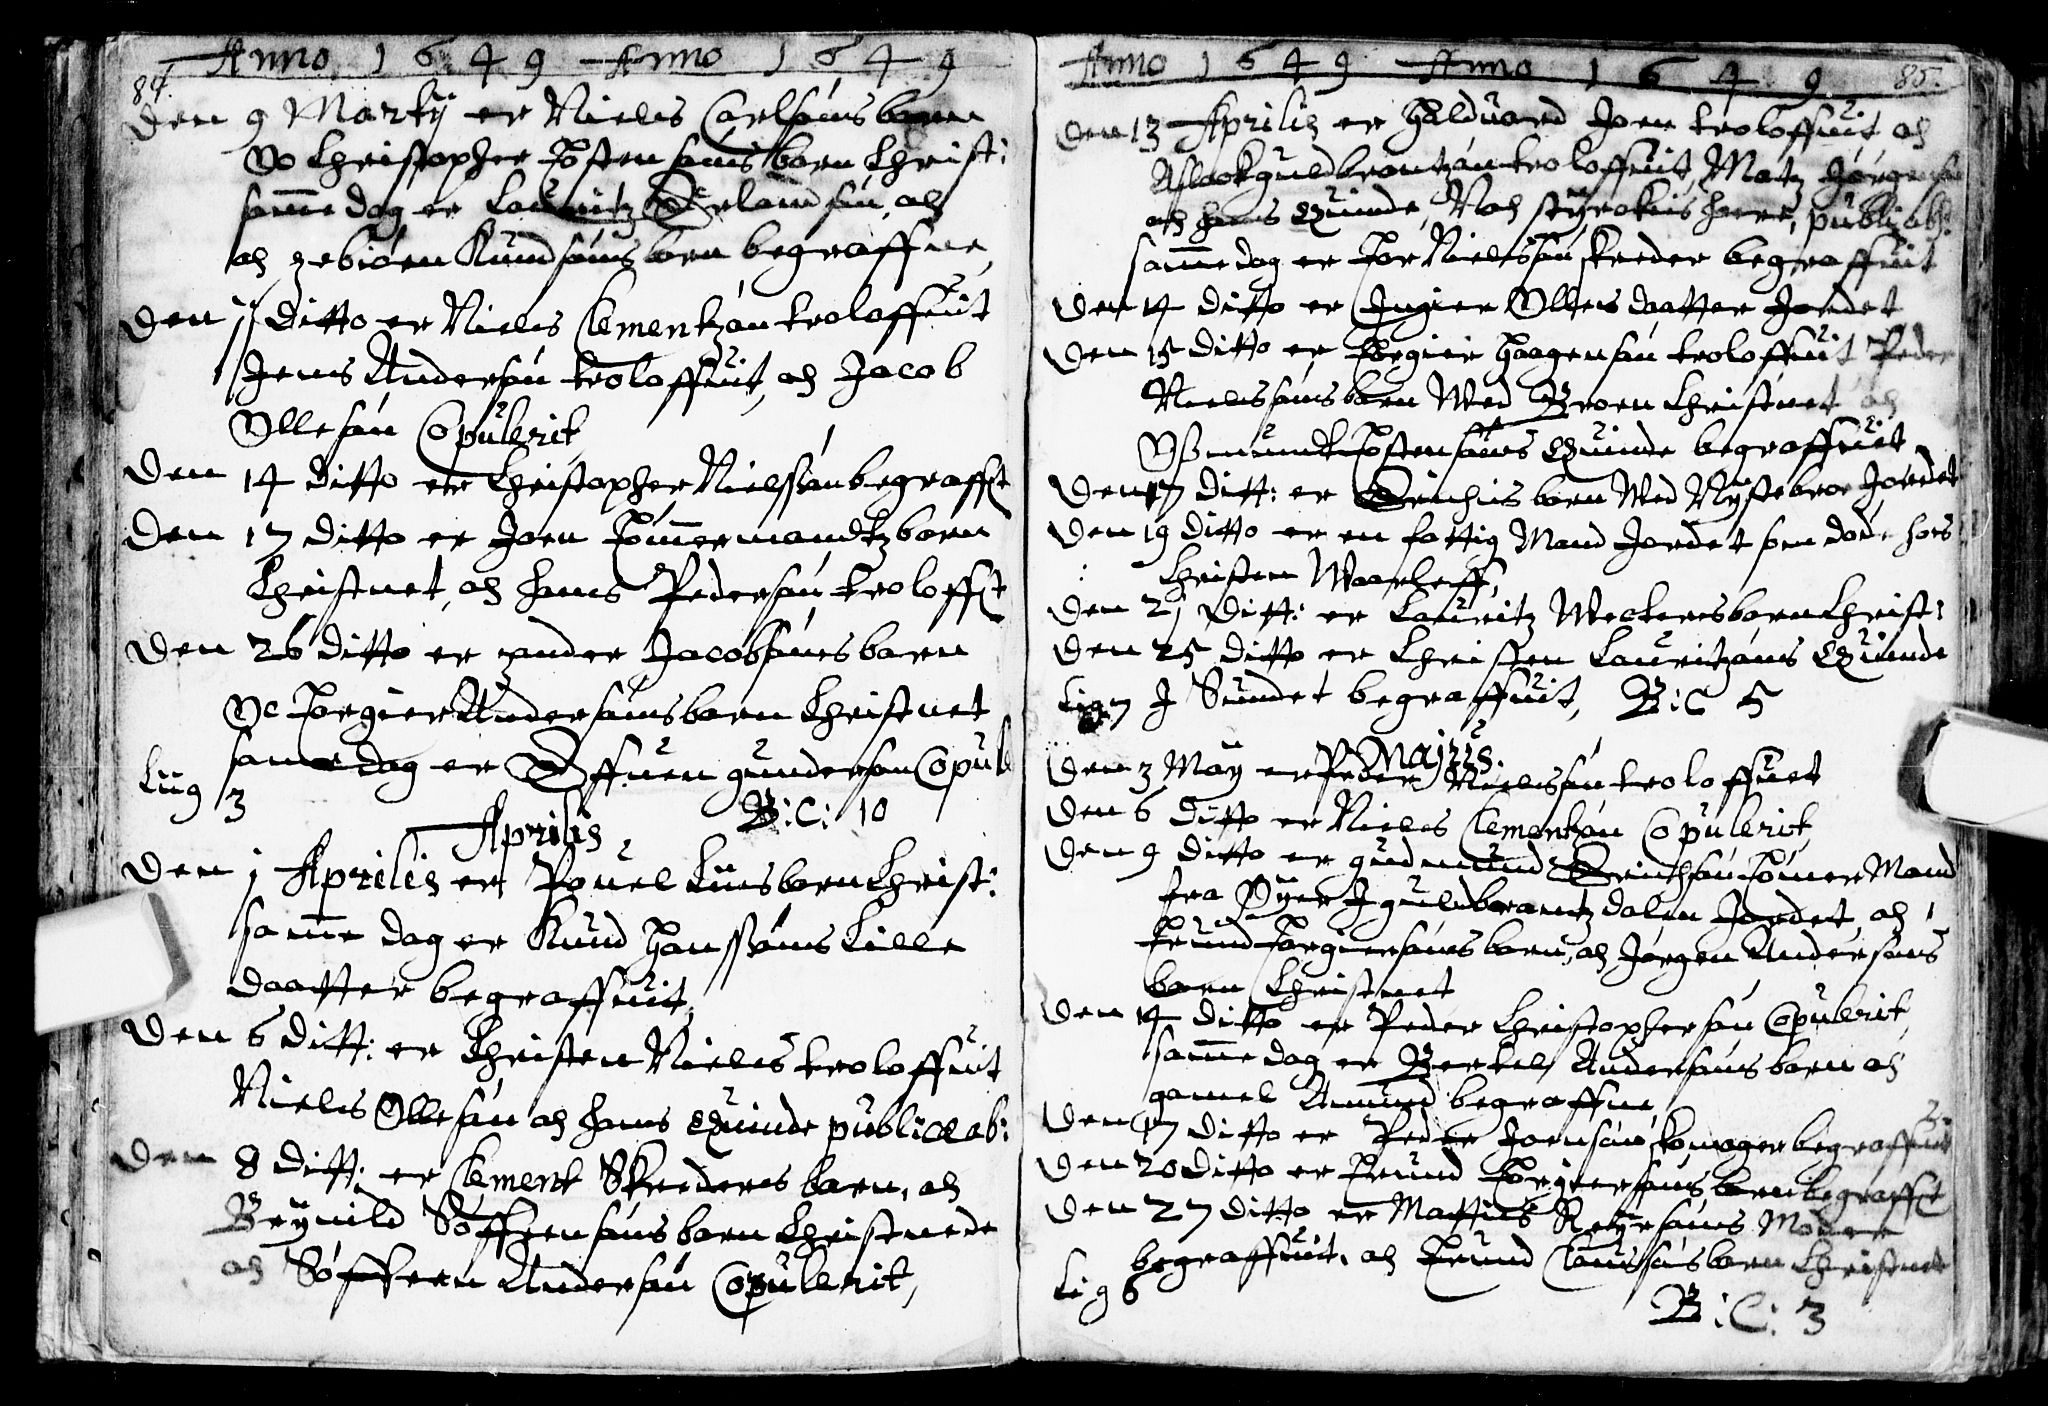 Anno 1649 Anno 1649
84.
Den 9 Martij er Niels Carlsøns barn
Oc Christopher Tostensøns barn Christ:
samme dag er Lauritz Erlandsøn, oc
oc Knudsøns barn begraffne,
Den 11 Ditto er Niels Clementzøn troloffuit
Jens Andersøn troloffuit, oc Jacob
Ollesøn Copulerit,
Den 14 ditto er Christopher Nielsøn begrafft
Den 17 ditto er Joen Tømmermandtz barn
Christnet, oc Hans Pedersøn troloffst
Den 26 ditto er Jacobsøns barn
Oc Torgier Andersøns barn Christnet
samme dag er Effuen gundersøn Copul
Liig 3 B:C: 10
Aprilis
Den 1 Aprilis er Pouel Lius barn Christ:
samme dag er Knud Hanssøns Lille
daatter begraffuit,
Den 6 ditt: er Christen Niels troloffuit
Niels Ollesøn oc hans Quinde publice ab:
Den 8 ditt: er Clement Skreders barn, oc
Brynild Søffrensøns barn Christnede
oc Søffren Andersøn Copulerit,
Anno 1649 Anno 1649 85.
Den 13 Aprilis er Halduard Joen troloffuit oc
Aslack guldbrantzøn troloffuit, Matz Jørgensøn
oc hans Quinde, Noch publi: ab:
samme dag er Tor Nielssøn skreder begraffuit
Den 14 ditto er Ingier Olluis daatter Jordet
Den 15 ditto er Torgier Haagensøn troloffuit Peder
Nielssøns barn Wed Broen Christnet oc
Ossmund Tostensøns Quinde begraffuet
Den 17 ditt: er barn Wed Nystebroe Jordet
Den 19 ditto er en fattig Mand Jordet som døde hos
Christen Waarleff,
Den 21 Ditt: er Lauritz Weckeres barn Christ:
Den 25 ditto er Christen Lauritzøns Quinde
Lig 7 J Sundet begraffuit, B:C 5
Majus.
Den 3 Maij er Peder Nielssøn troloffuet
Den 6 Ditto er Niels Clementzøn Copulerit,
Den 9 ditto er gudmund Tømmer Mand
fra Øyer J guldbrantzdalen Jordet, oc
Trund Torgiersøns barn, oc Jørgen Andersøns
barn Christnet
Den 14 ditto er Peder Christophersøn Copulerit,
samme dag er Bertel Andersøns barn oc
gamel Amund begraffne,
Den 17 ditto er Peder Joensøn skomager begraffuit
Den 20 ditto er Trund Torgiersøns barn begrafft
Den 27 ditto er Mattis Reyersøns Moder
begraffuit, oc Trund Claussøns barn Christnet
Lig 6
B:C: 3